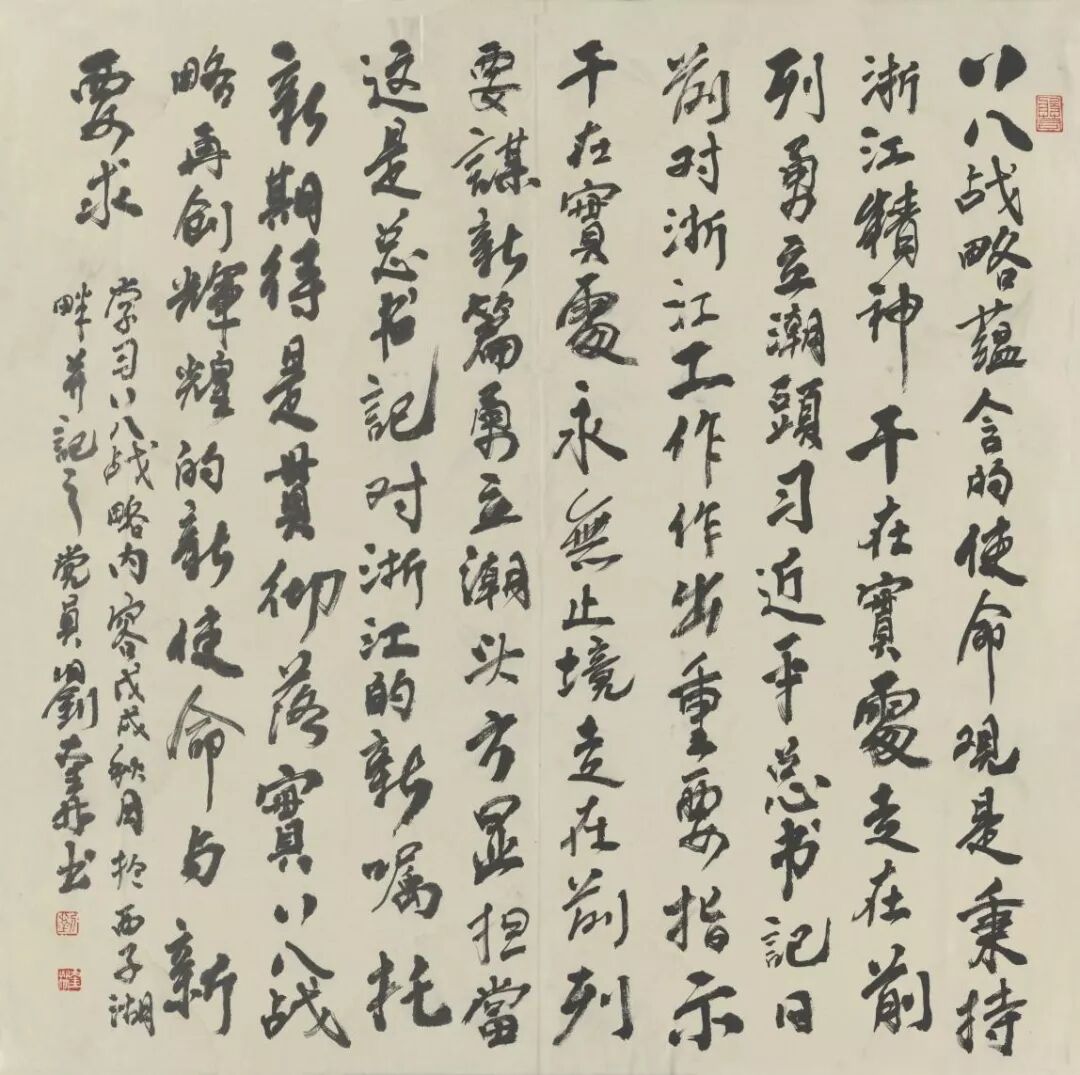 八八战略蕴含的使命观是秉持
浙江精神干在實處走在前
列勇立潮頭习近平总书記日
前对浙江工作作出重要指示
干在實處永無止境走在前列
要謀新篇勇立潮头方显担當
这是总书記对浙江的新嘱托
新期待是貫彻落實八八战
略再创輝煌的新使命与新
要求
学习八八战略内容戊戌秋月於西子湖
畔并記之党員劉书